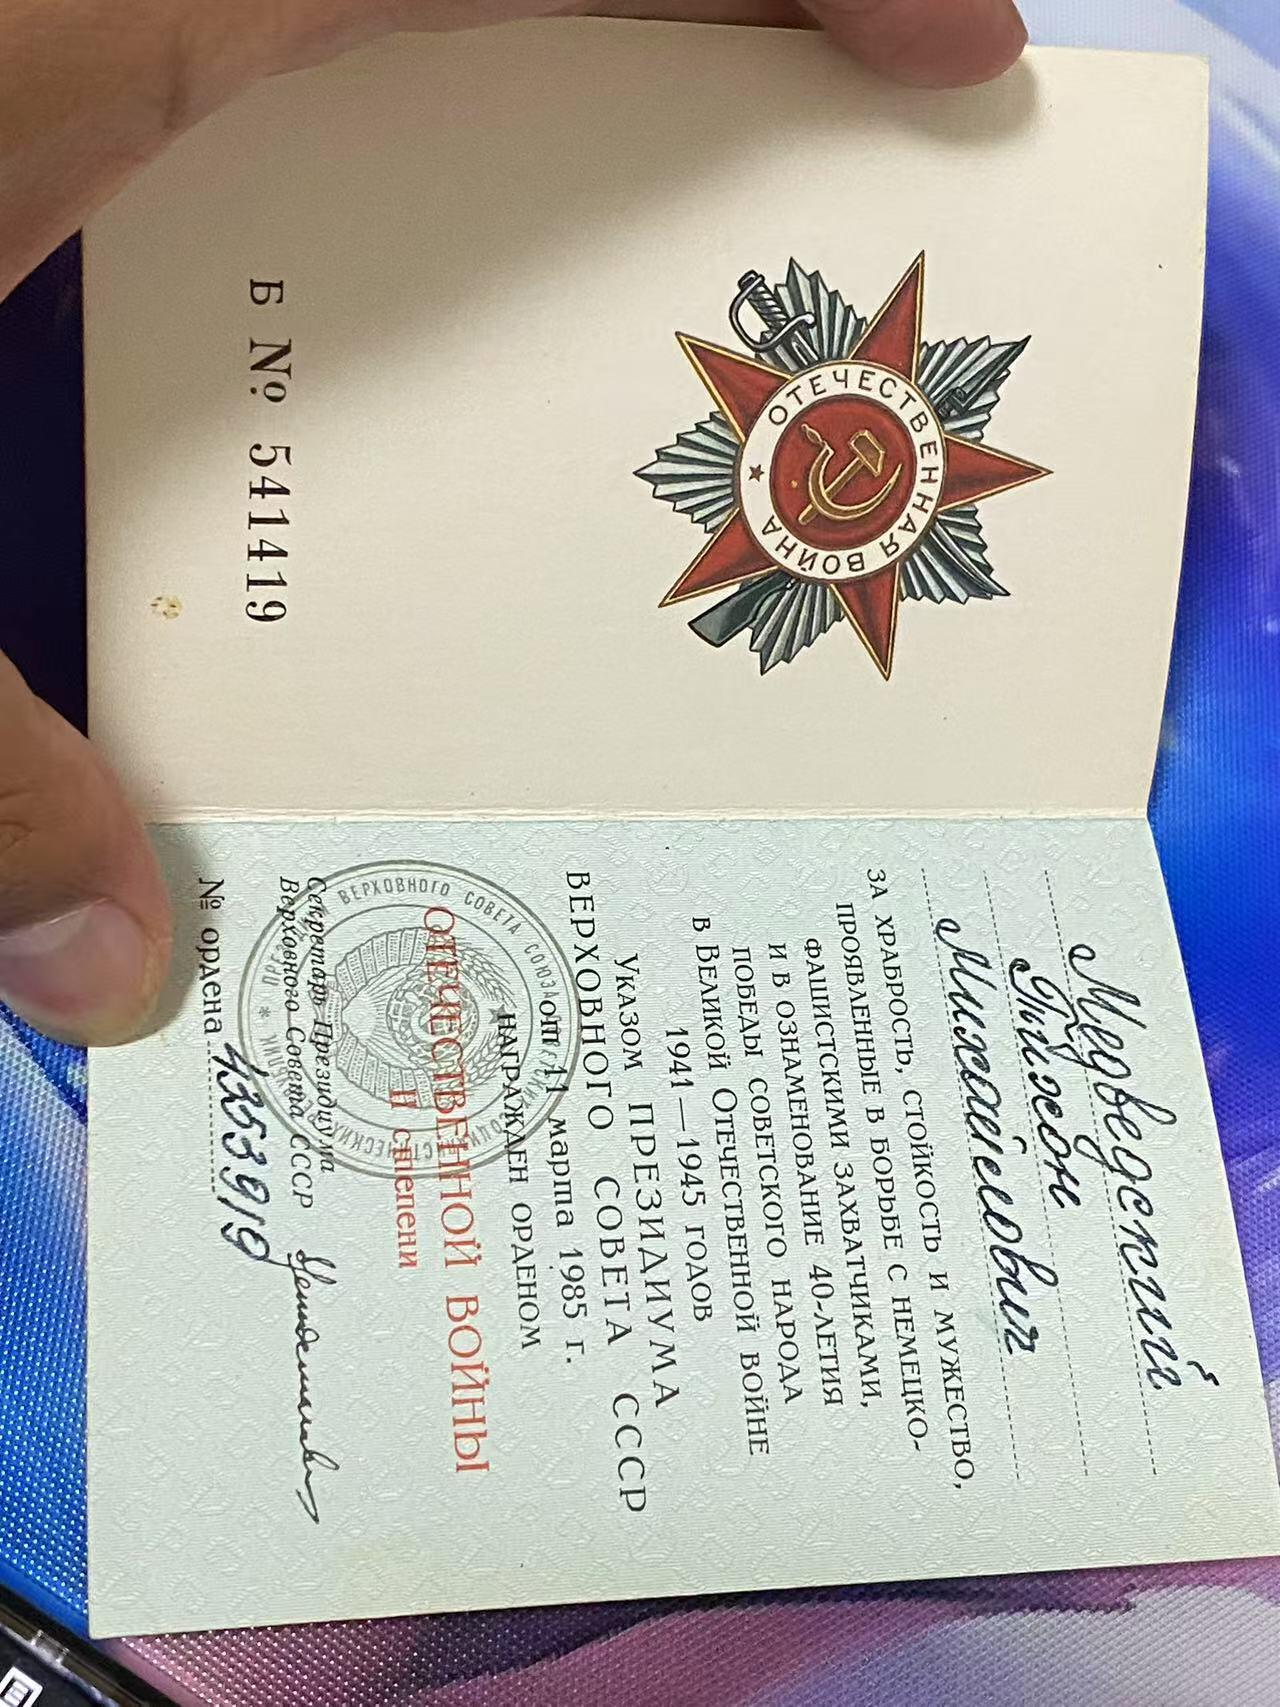 ОТЕЧЕСТВЕННАЯ ВОЙНА
Б № 541419
Медведский
Тихон
Михайлович
ЗА ХРАБРОСТЬ, СТОЙКОСТЬ И МУЖЕСТВО,
ПРОЯВЛЕННЫЕ В БОРЬБЕ С НЕМЕЦКО-
ФАШИСТСКИМИ ЗАХВАТЧИКАМИ,
И В ОЗНАМЕНОВАНИЕ 40-ЛЕТИЯ
ПОБЕДЫ СОВЕТСКОГО НАРОДА
В ВЕЛИКОЙ ОТЕЧЕСТВЕННОЙ ВОЙНЕ
1941—1945 ГОДОВ
УКАЗОМ ПРЕЗИДИУМА
ВЕРХОВНОГО СОВЕТА СССР
от 11 марта 1985 г.
НАГРАЖДЕН ОРДЕНОМ
ОТЕЧЕСТВЕННОЙ ВОЙНЫ
II степени
ВЕРХОВНОГО СОВЕТА СОЮЗА
Секретарь Президиума
Верховного Совета СССР
№ ордена 4253919